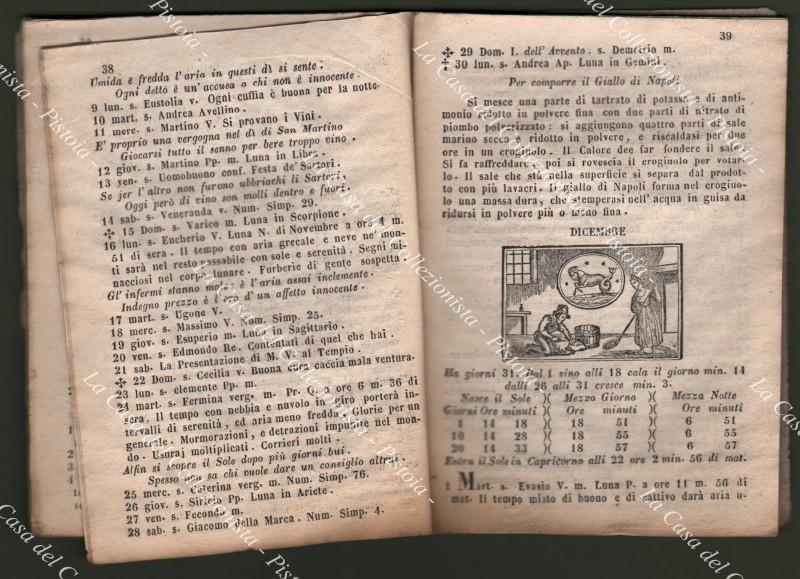 38
Umida e fredda l'aria in questi dì si sente.
Ogni detto è un'accusa a chi non è innocente.
9 lun. s. Eustolia v. Ogni cuffia è buona per la notte.
10 mart. s. Andrea Avellino.
11 merc. s. Martino V. Si provano i Vini.
E' proprio una vergogna nel dì di San Martino
Giocarsi tutto il senno per bere troppo vino.
12 giov. s. Martino Pp. m. Luna in Libra.
13 ven. s. Uomobuono conf. Festa de' Sartori.
Se jer l'altro non furono ubbriachi li Sartori,
Oggi però di vino son molli dentro e fuori.
14 sab. s. Veneranda v. Num. Simp. 29.
✠ 15 Dom. s. Varico m. Luna in Scorpione.
16 lun. s. Eucherio V. Luna N. di Novembre a ore 4 m.
51 di sera. Il tempo con aria grecale e neve ne' mon-
ti sarà nel resto passabile con sole e serenità. Segni mi-
nacciosi nel corpo lunare. Furberie di gente sospetta.
Gl' infermi stanno male: è l'aria assai inclemente.
Indegno prezzo è l'oro d'un affetto innocente.
17 mart. s. Ugone V.
18 merc. s. Massimo V. Num. Simp. 25.
19 giov. s. Esuperio m. Luna in Sagittario.
20 ven. s. Edmondo Re. Contentati di quel che hai.
21 sab. La Presentazione di M. V. al Tempio.
✠ 22 Dom. s. Cecilia v. Buona cura caccia mala ventura.
23 lun. s. clemente Pp. m.
24 mart. s. Fermina verg. m. Pr. Q. a ore 6 m. 36 di
sera. Il tempo con nebbia e nuvolo in giro porterà in-
tervalli di serenità, ed aria meno fredda. Glorie per un
generale. Mormorazioni, e detrazioni impunite nel mon-
do. Usuraj moltiplicati. Corrieri molti.
Alfin si scopre il Sole dopo più giorni bui.
Spesso non sa chi vuole dare un consiglio altrui.
25 merc. s. Caterina verg. m. Num. Simp. 76.
26 giov. s. Siricio Pp. Luna in Ariete.
27 ven. s. Fecondo m.
28 sab. s. Giacomo della Marca. Num. Simp. 4.
39
✠ 29 Dom. I. dell'Avvento. s. Demetrio m.
‡ 30 lun. s. Andrea Ap. Luna in Gemini.
Per comporre il Giallo di Napoli.
Si mesce una parte di tartrato di potassa di anti-
monio ridotto in polvere fina con due parti di nitrato di
piombo polverizzato: si aggiungono quattro parti di sale
marino secco e ridotto in polvere, e riscaldasi per due
ore in un crogiuolo. Il Calore dee far fondere il sale.
Si fa raffreddare, poi si rovescia il crogiuolo per votar-
lo. Il sale che sta nella superficie si separa dal prodot-
to con più lavacri. Il giallo di Napoli forma nel crogiuo-
lo una massa dura, che stemperasi nell'acqua in guisa da
ridursi in polvere più o meno fina.
DICEMBRE
Ha giorni 31. Dal 1 sino alli 18 cala il giorno min. 14
dalli 26 alli 31 cresce min. 3.
Nasce il Sole )( Mezzo Giorno )( Mezza Notte
Giorni Ore minuti )( Ore minuti )( Ore minuti
1 14 18 )( 18 51 )( 6 51
10 14 28 )( 18 55 )( 6 55
20 14 33 )( 18 57 )( 6 57
Entra il Sole in Capricorno alli 22 ore 2 min. 56 di mat.
1 Mart. s. Evasio V. m. Luna P. a ore 11 m. 56 di
mat. Il tempo misto di buono e di cattivo darà aria u-
La Casa del Collezionista - Pistoia